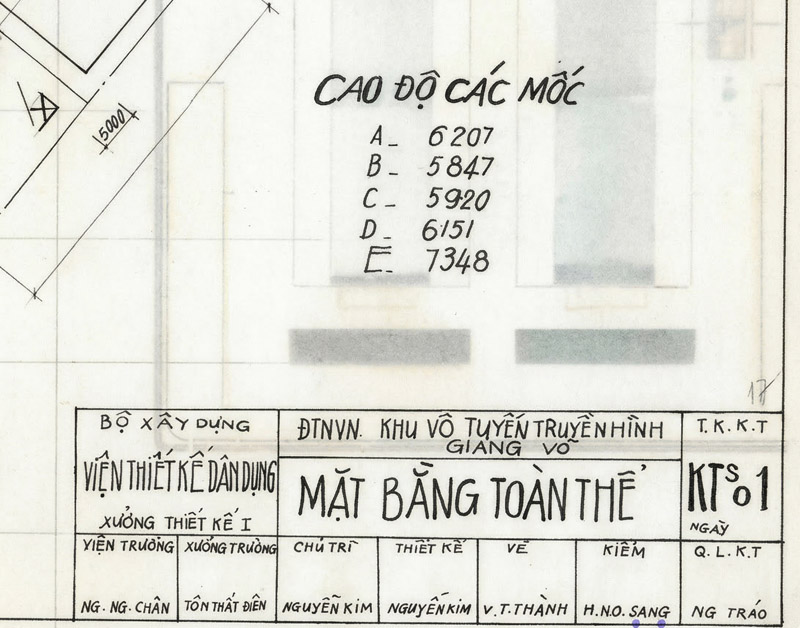 5000
CAO ĐỘ CÁC MỐC
A_ 6207
B_ 5847
C_ 5920
D_ 6151
E_ 7348
17
BỘ XÂY DỰNG
VIỆN THIẾT KẾ DÂN DỤNG
XƯỞNG THIẾT KẾ I
ĐTNVN. KHU VÔ TUYẾN TRUYỀN HÌNH
GIANG VÕ
MẶT BẰNG TOÀN THỂ
T.K.K.T
KTS01
NGÀY
VIỆN TRƯỞNG
NG. NG. CHÂN
XƯỞNG TRƯỞNG
TÔN THẤT ĐIÊN
CHỦ TRÌ
NGUYỄN KIM
THIẾT KẾ
NGUYỄN KIM
VẼ
V.T.THÀNH
KIỂM
H.N.O. SANG
Q.L.K.T
NG TRÁO